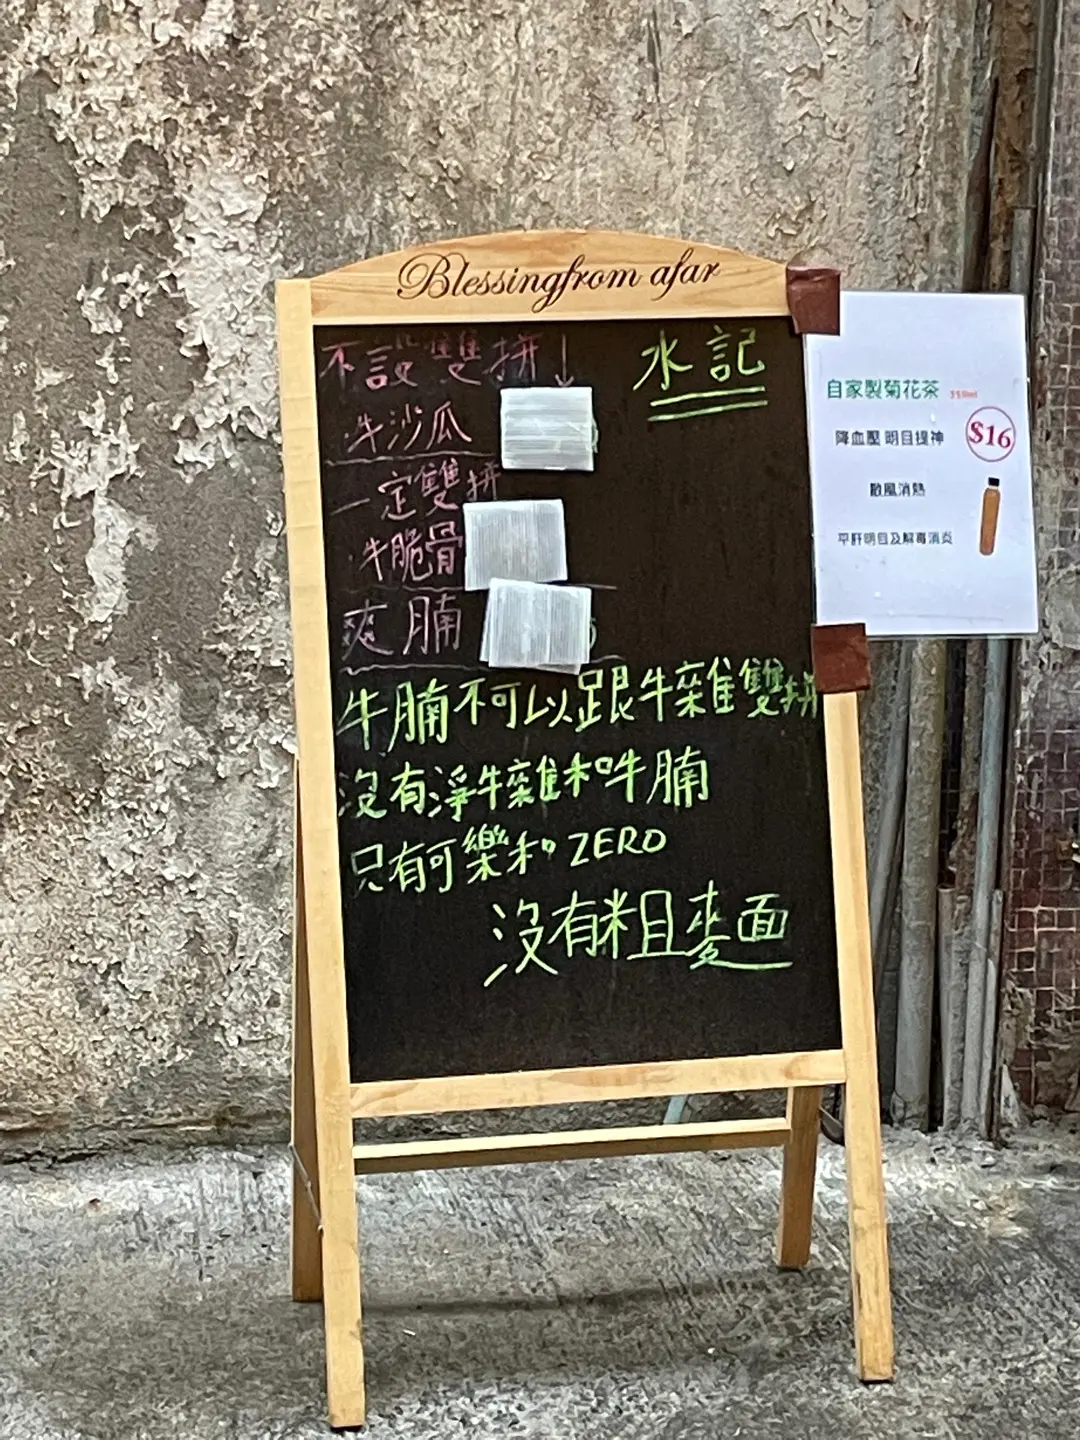 Blessingfrom afar
水記
不設雙拼↓
牛沙瓜
一定雙拼
牛脆骨
爽腩
牛腩不可以跟牛雜雙拼
沒有淨牛雜和牛腩
只有可樂和 ZERO
沒有粗麥面
自家製菊花茶
$16
降血壓 明目提神
散風消熱
平肝明目及解毒消炎